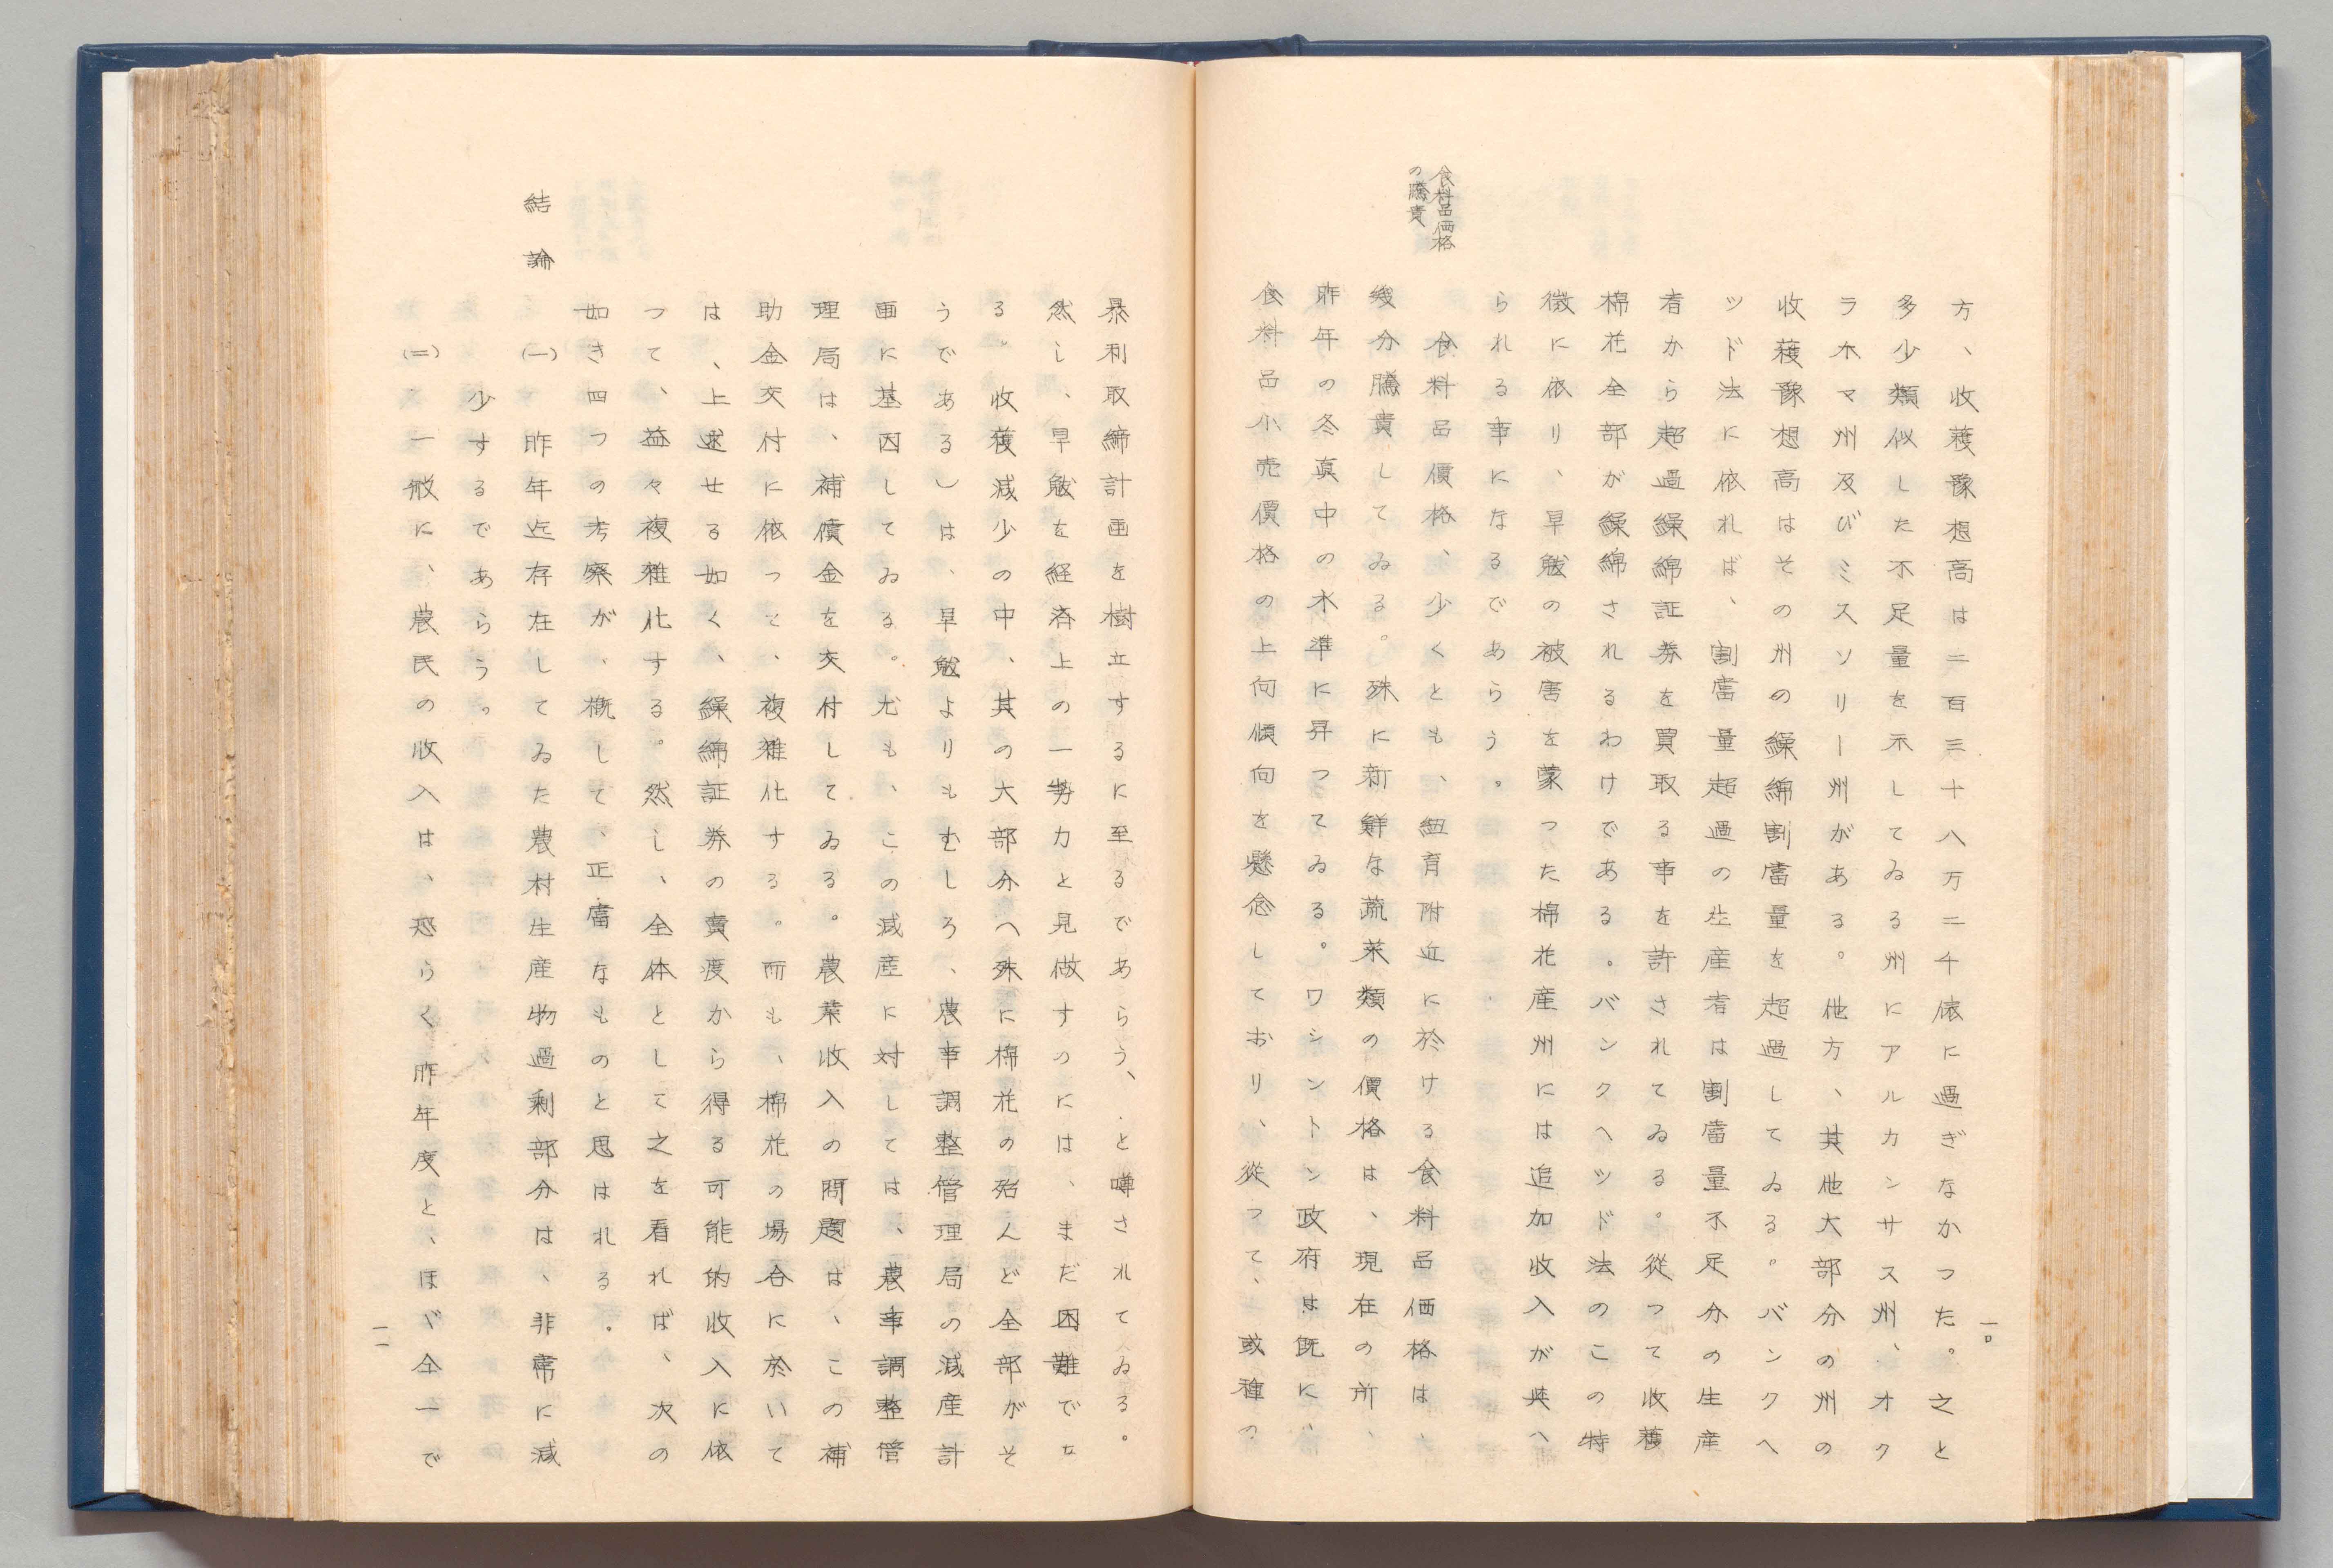 一〇
方、収穫豫想高は二百三十八万二千俵に過ぎなかつた。之と
多少類似した不足量を示してゐる州にアルカンサス州、オク
ラホマ州及びミスソリー州がある。他方、其他大部分の州の
収穫豫想高はその州の繰綿割當量を超過してゐる。バンクヘ
ツド法に依れば、割當量超過の生産者は割當量不足分の生産
者から超過繰綿証券を買取る事を許されてゐる。従つて收穫
棉花全部が繰綿されるわけである。バンクヘツド法のこの特
徴に依リ、旱魃の被害を蒙つた棉花産州には追加收入が與へ
られる事になるであらう。
食料品価格
の騰貴
食料品價格、少くとも、紐育附近に於ける食料品価格は、
幾分騰貴してゐる。殊に新鮮な蔬菜類の價格は、現在の所、
昨年の冬真中の水準に昇つてゐる。ワシントン政府は既に、
食料品小売價格の上向傾向を懸念しておリ、從つて、或種の
暴利取締計画を樹立するに至るであらう、と噂されてゐる。
然し、旱魃を経済上の一勢力と見做すのには、まだ困難でな
る。收獲減少の中、其の大部分へ殊に棉花の殆んど全部がそ
うである)は、旱魃よりもむしろ、農事調整管理局の減産計
画に基因してゐる。尤も、この減産に対しては、農事調整管
理局は、補償金を交付してゐる。農業收入の問題は、この補
助金交付に依つて、複雑化する。而も、棉花の場合に於いて
は、上述せる如く、繰綿証券の賣渡から得る可能的收入に依
つて、益々複雑化する。然し、全体として之を看れば、次の
如き四つの考察が、概して、正當なものと思はれる。
結論
(一)昨年迄存在してゐた農村生産物過剰部分は、非常に減
少するであらう。
(二)一般に、農民の收入は、恐らく昨年度と、ほゞ仝一で
一一